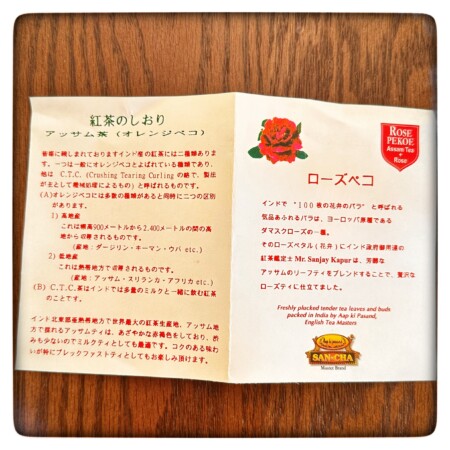 紅茶のしおり
アッサム茶（オレンジペコ）
皆様に親しまれておりますインド産の紅茶には二種類ありま
す。一つは一般にオレンジペコとよばれている種類であり、
他は C.T.C.(Crushing Tearing Curling の略で、製法
が主として機械処理によるもの）と呼ばれるものです。
(A)オレンジペコには多数の種類があると同時に二つの区別
があります。
1）高地産
これは標高900メートルから2,400メートルの間の高
地から収得されるものです。
（産地：ダージリン・キーマン・ウバ etc.)
2）低地産
これは熱帯地方で収得されるものです。
（産地：アッサム・スリランカ・アフリカ etc.)
(B) C.T.C.茶はインドでは多量のミルクと一緒に飲む紅茶
のことです。
インド北東部亜熱帯地方で世界最大の紅茶生産地、アッサム地
方で採れるアッサムティは、あざやかな赤褐色をしており、渋
みも少ないのでミルクティとしても最適です。コクのある味わ
いが特にブレックファストティとしてもお楽しみ頂けます。
ROSE
PEKOE
Assam Tea
+
Rose
ローズペコ
インドで “100枚の花弁のバラ” と呼ばれる
気品あふれるバラは、ヨーロッパ原種である
ダマスクローズの一種。
そのローズペタル（花弁）にインド政府御用達の
紅茶鑑定士 Mr. Sanjay Kapur は、芳醇な
アッサムのリーフティをブレンドすることで、贅沢な
ローズティに仕立てました。
Freshly plucked tender tea leaves and buds
packed in India by Aap ki Pasand,
English Tea Masters
SAN-CHA